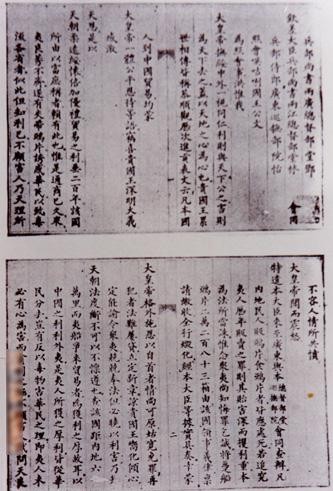 兵部尚書兩廣總督部堂鄧
欽差大臣兵部尚書兩江總督部堂林
兵部侍郎廣東巡撫部院怡 會同
照會㗆咭唎國王公文
為照會事洪惟我
大皇帝撫綏中外一視同仁利則與天下公之害則
為天下去之蓋以天地之心為心也貴國王累
世相傳皆稱恭順觀歷次進貢表文云凡本國
人到中國貿易均蒙
大皇帝一體公平恩待等語竊喜貴國王深明大義
感激
天恩是以
天朝柔遠綏懷倍加優禮貿易之利垂二百年該國
所由以富庶稱者賴有此也惟是通商已久眾
夷良莠不齊遂有夾帶鴉片誘惑華民以致毒
流各省者似此但知利己不顧害人乃天理所
不容人情所共憤
大皇帝聞而震怒
特遣本大臣來至廣東與本總督部堂巡撫部院會同查辦凡
內地民人販鴉片食鴉片者皆應處死若追究
夷人歷年販賣之罪則其貽害深而攫利重本
為法所當誅惟念眾夷尚知悔罪乞誠將躉船
鴉片二萬二百八十三箱由該國領事義律稟
請繳收全行燬化經本大臣等據實具奏幸蒙
二
大皇帝格外施恩以自首者情尚可原姑寬免罪再
犯者法難屢貸立定新章諒貴國王嚮化傾心
定能諭令眾夷兢兢奉法但必曉以利害乃知
天朝法度斷不可以不懍遵也查該國距內地六七
萬里而夷船爭來貿易者為獲利之厚故耳以
中國之利利外夷是夷人所獲之厚利皆從華
民分去豈有反以毒物害華民之理即夷人未
必有心為害而 害人試問天良